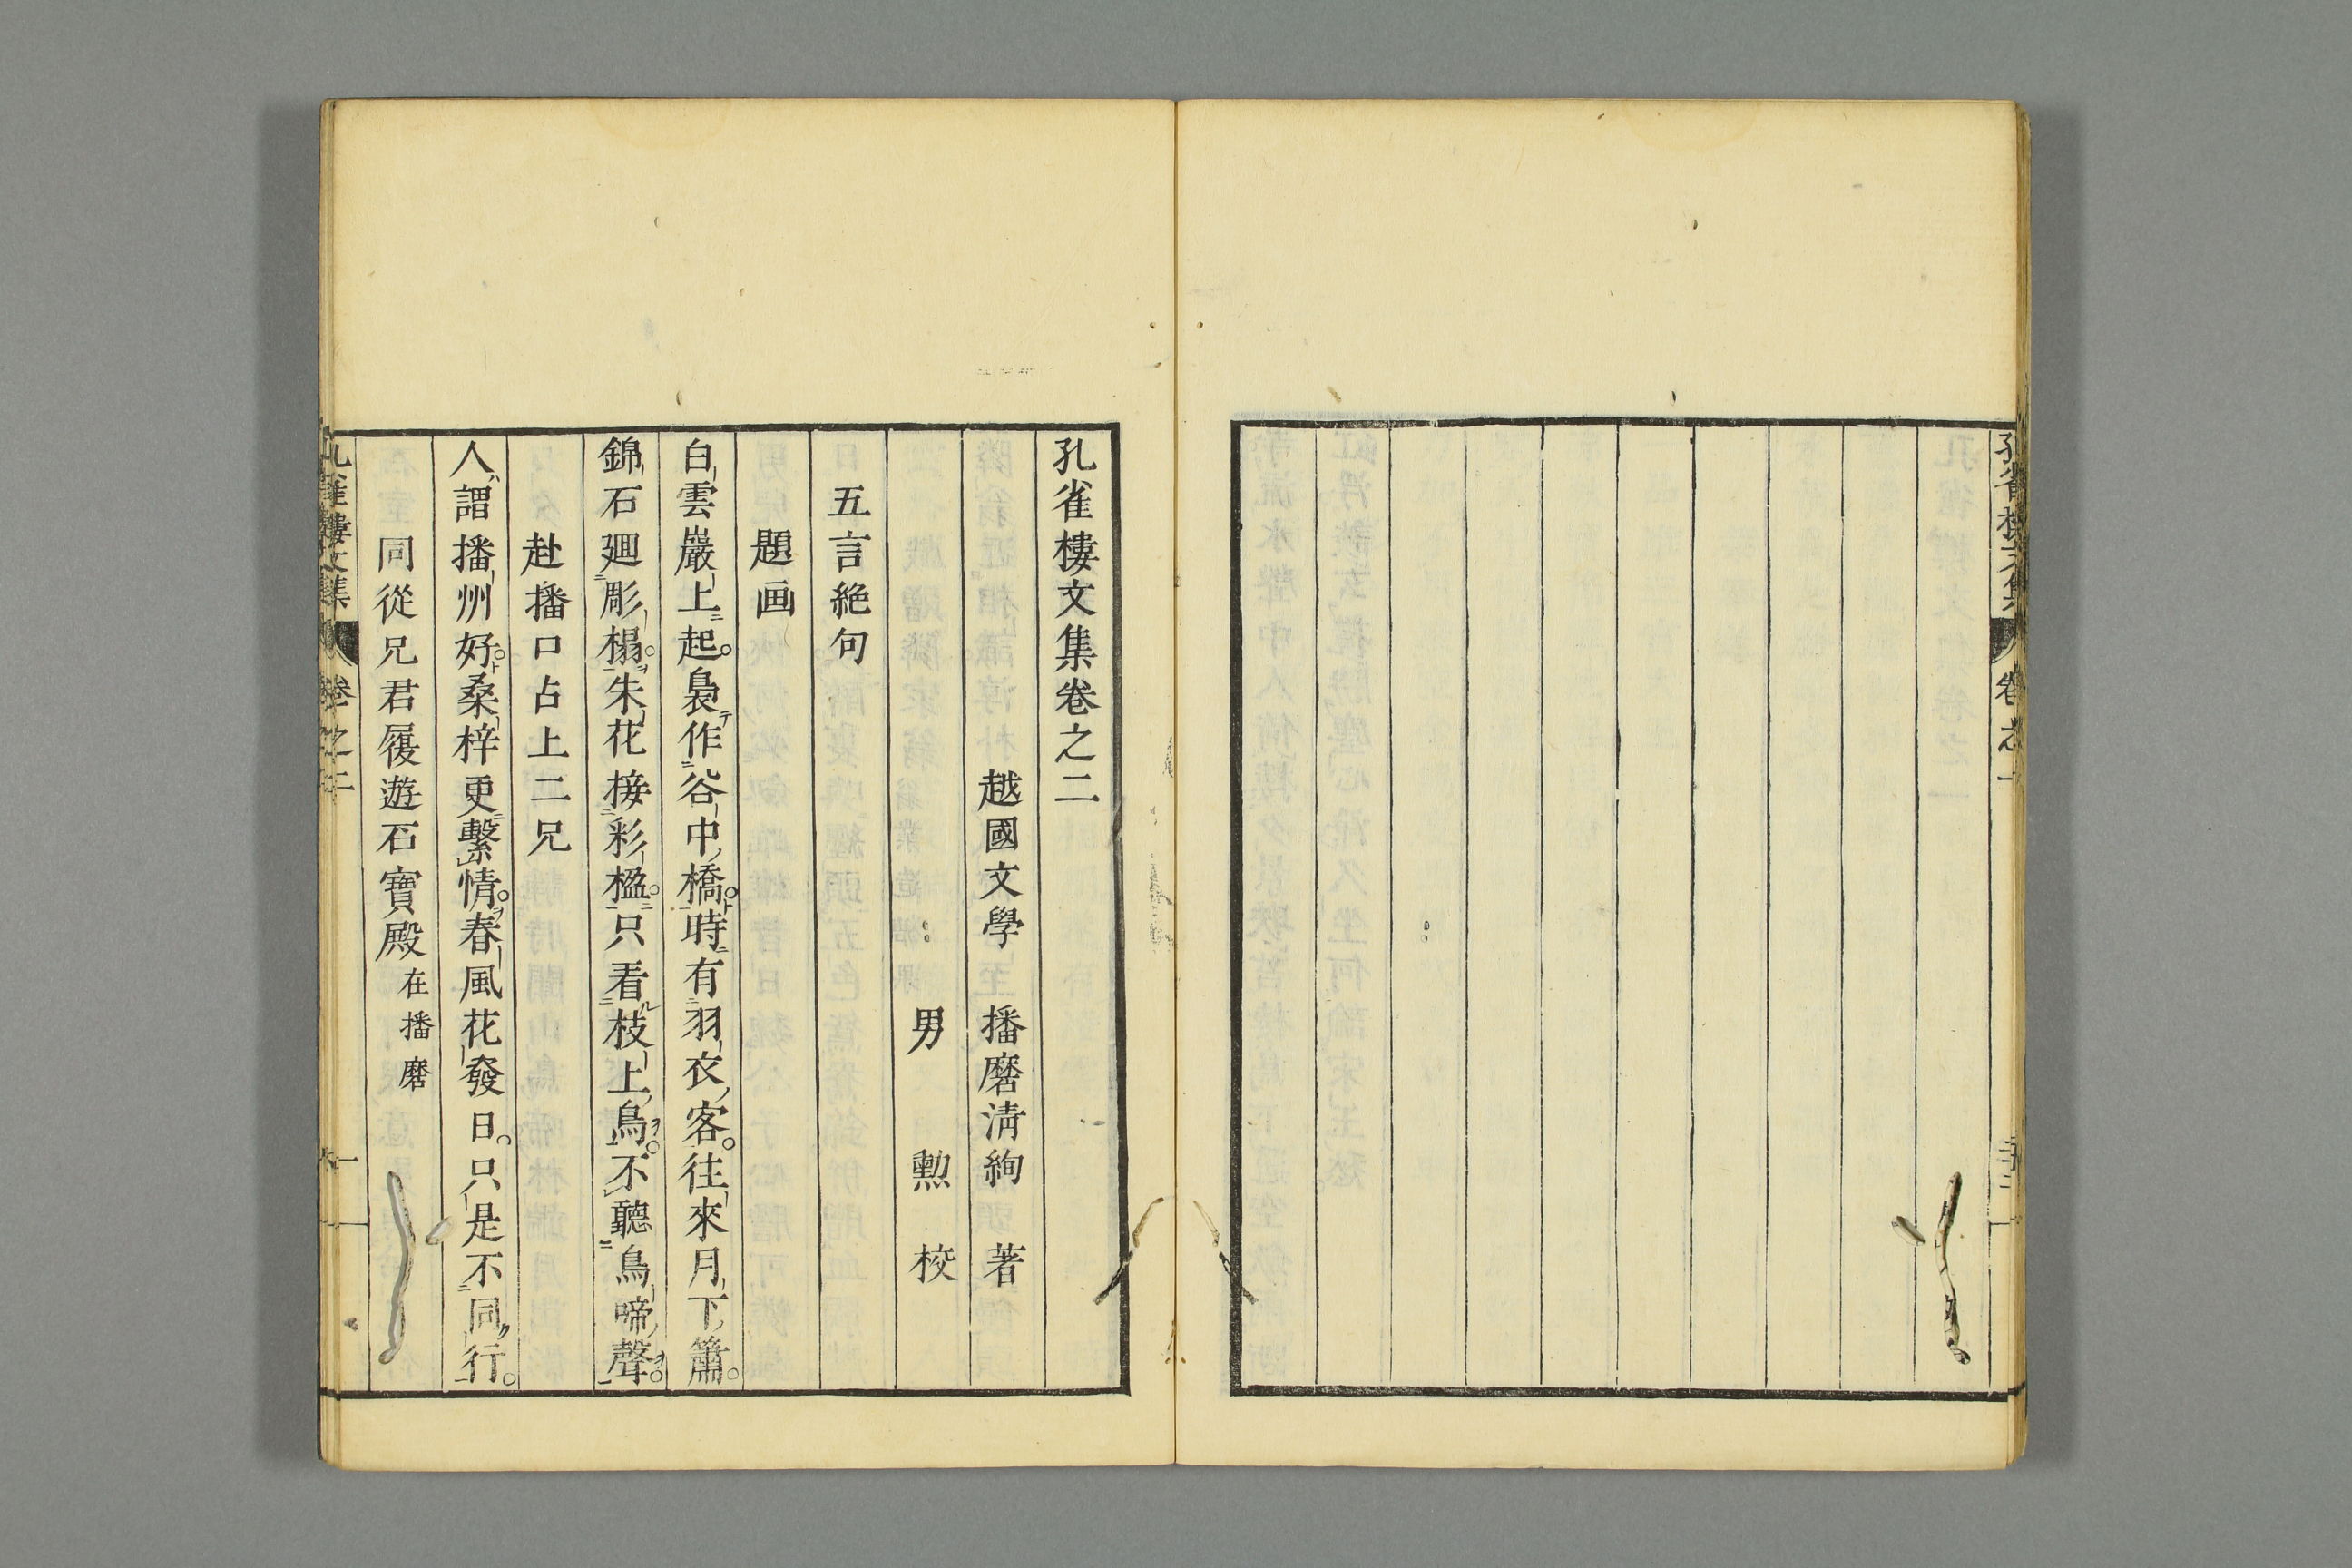 孔雀樓文集
卷之一
孔雀樓文集卷之二
越國文學　播磨淸絢　著
男　勲　校
五言絶句
題画
白雲巖上起。裊作谷中橋。時有羽衣客。往來月下簫。
錦石廻彫榻。朱花接彩楹。只看枝上鳥。不聽鳥啼聲。
赴播口占上二兄
人謂播州好。桑梓更繫情。春風花發日。只是不同行。
同從兄君履遊石寶殿在播磨
孔雀樓文集
卷之二
一